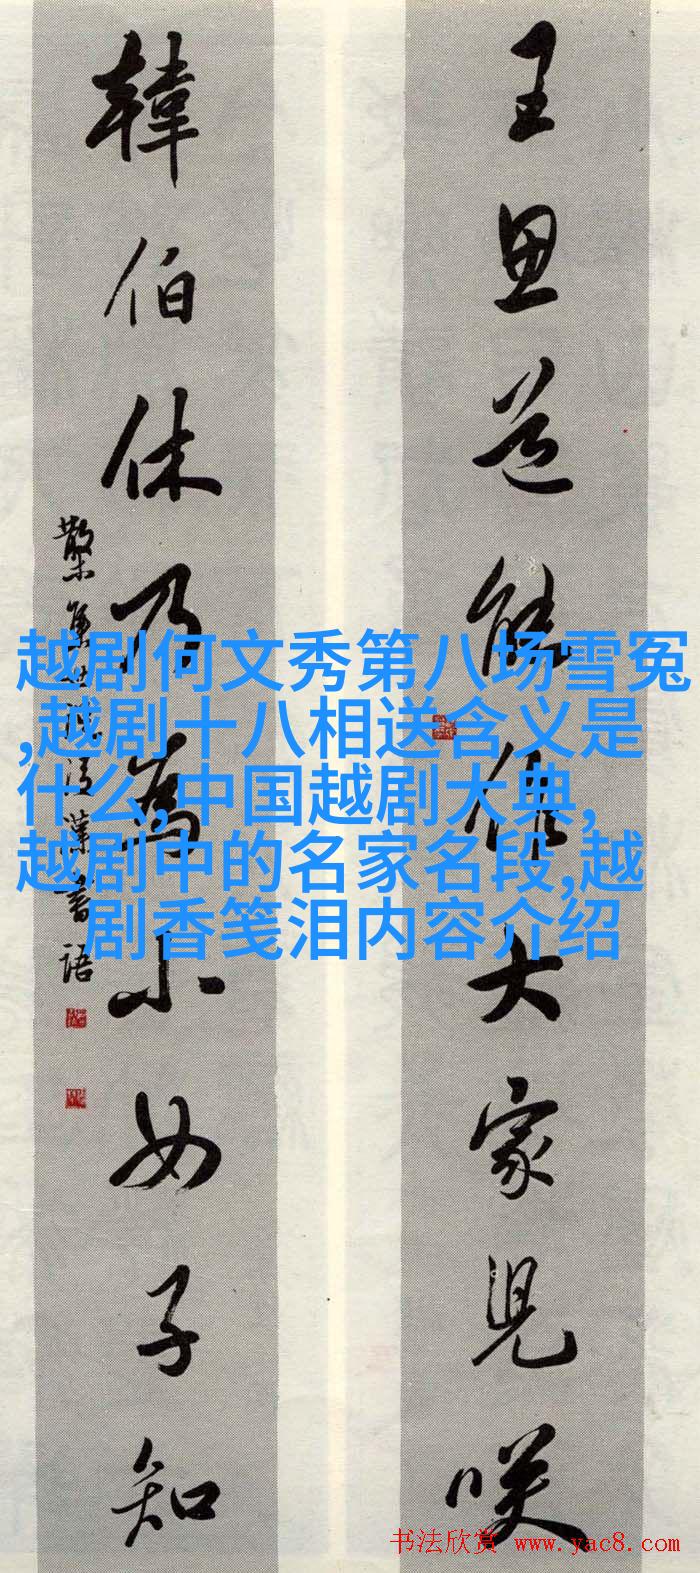 王思道能作大家兒咲
韓伯休乃為小女子知
集世說後漢書語
越剧何文秀第八场雪冤
,越剧十八相送含义是
什么,中国越剧大典,
越剧中的名家名段,越
剧香笺泪内容介绍
书法欣赏 www.yac8.com